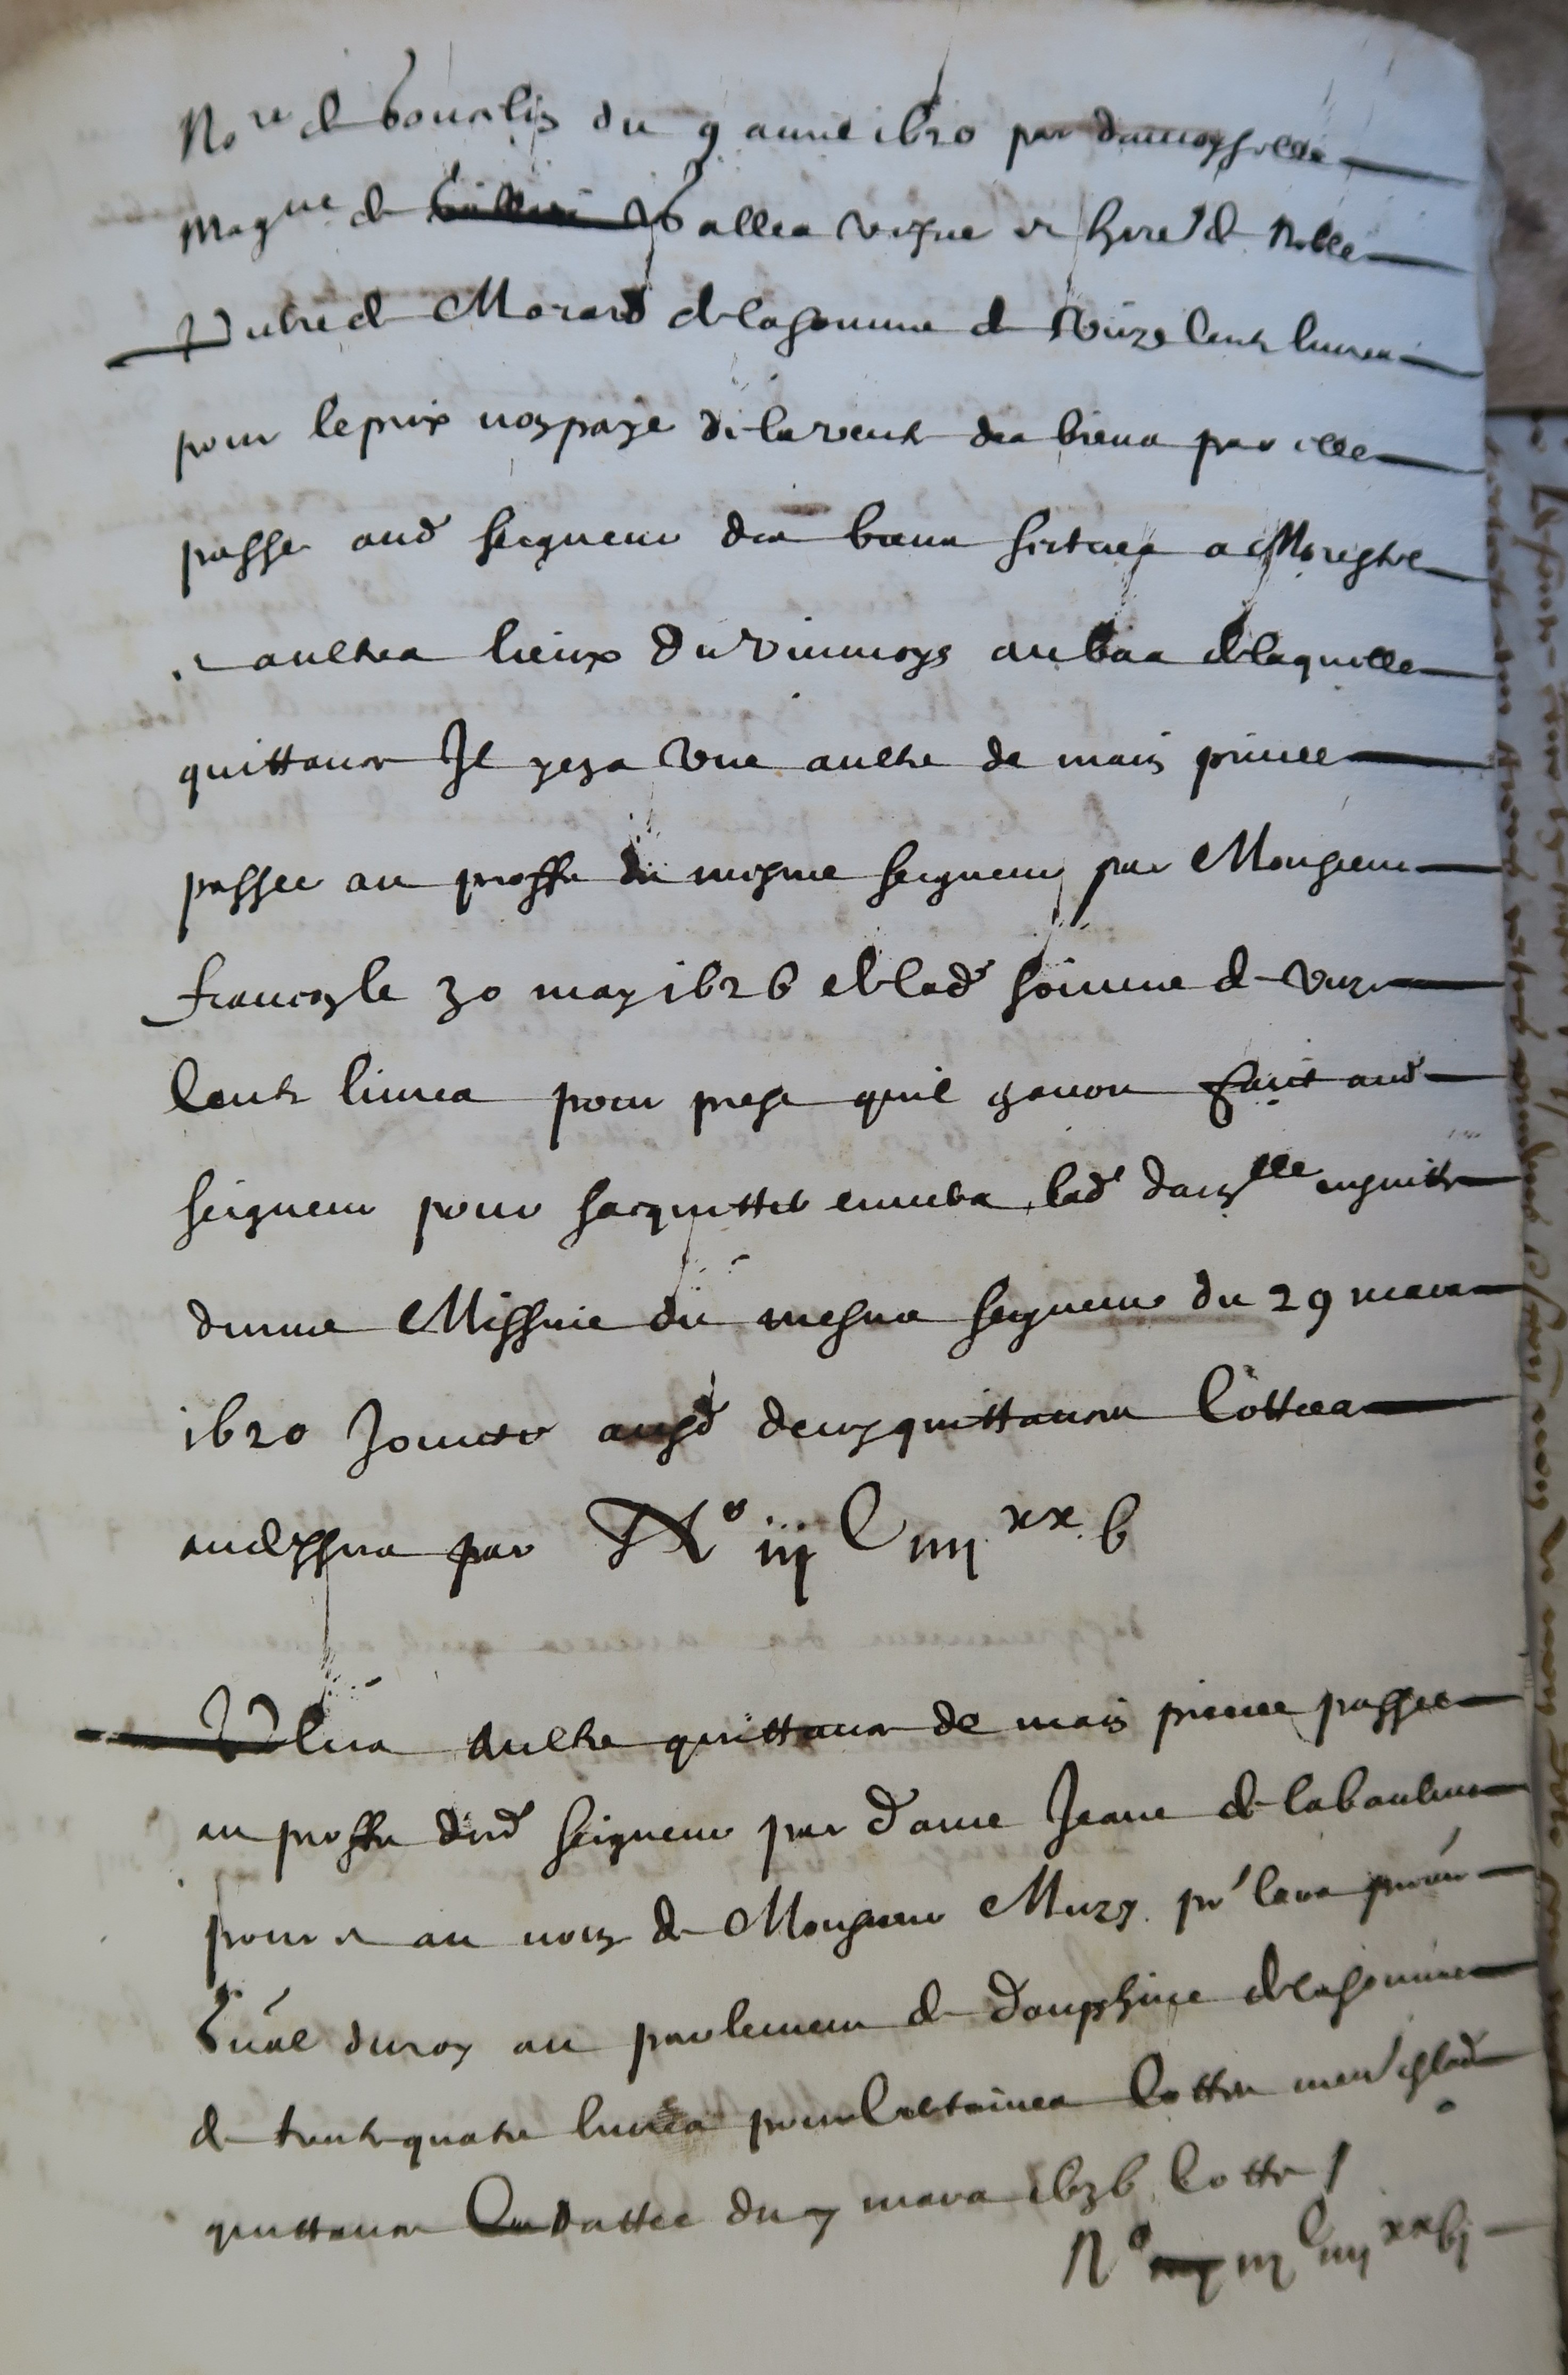 No.re de du 9 auril 1620 par damoyselle
Mag.ne de Vallea vefue et here' de Noble
de Morard de la somme de Unze centz liures
pour le prix non paye de la vente des biens par elle
passe aud seigneur des biens scitues a Morestel
et aultres lieux du viennoys au bas de laquelle
quittance Il y en a vne aultre de main priuee
passee au proffit du mesme seigneur par Monsieur
francoys le 30 may 1626 de lad somme de vnze
centz liures pour prest quil auoit faict aud
seigneur pour sacquitter enuers lad dam.lle ensuitte
dune Missiue du mesme seigneur du 29 mars
1620 Joincte ausd deux quittances Cottees
au dessus par No iij C iiii xx. b
Plus aultre quittance de main priuee passee
au proffit dud seigneur par dame Jeane de la
pour et au nom de Monsieur Musy
du roy au parlement de dauphine de la somme
de trente quatre liures pour Certaines
quittance dattee du 7 mars 1636 Cotte
No iij C iiii xx bj